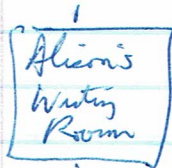 Alison's
Writing
Room